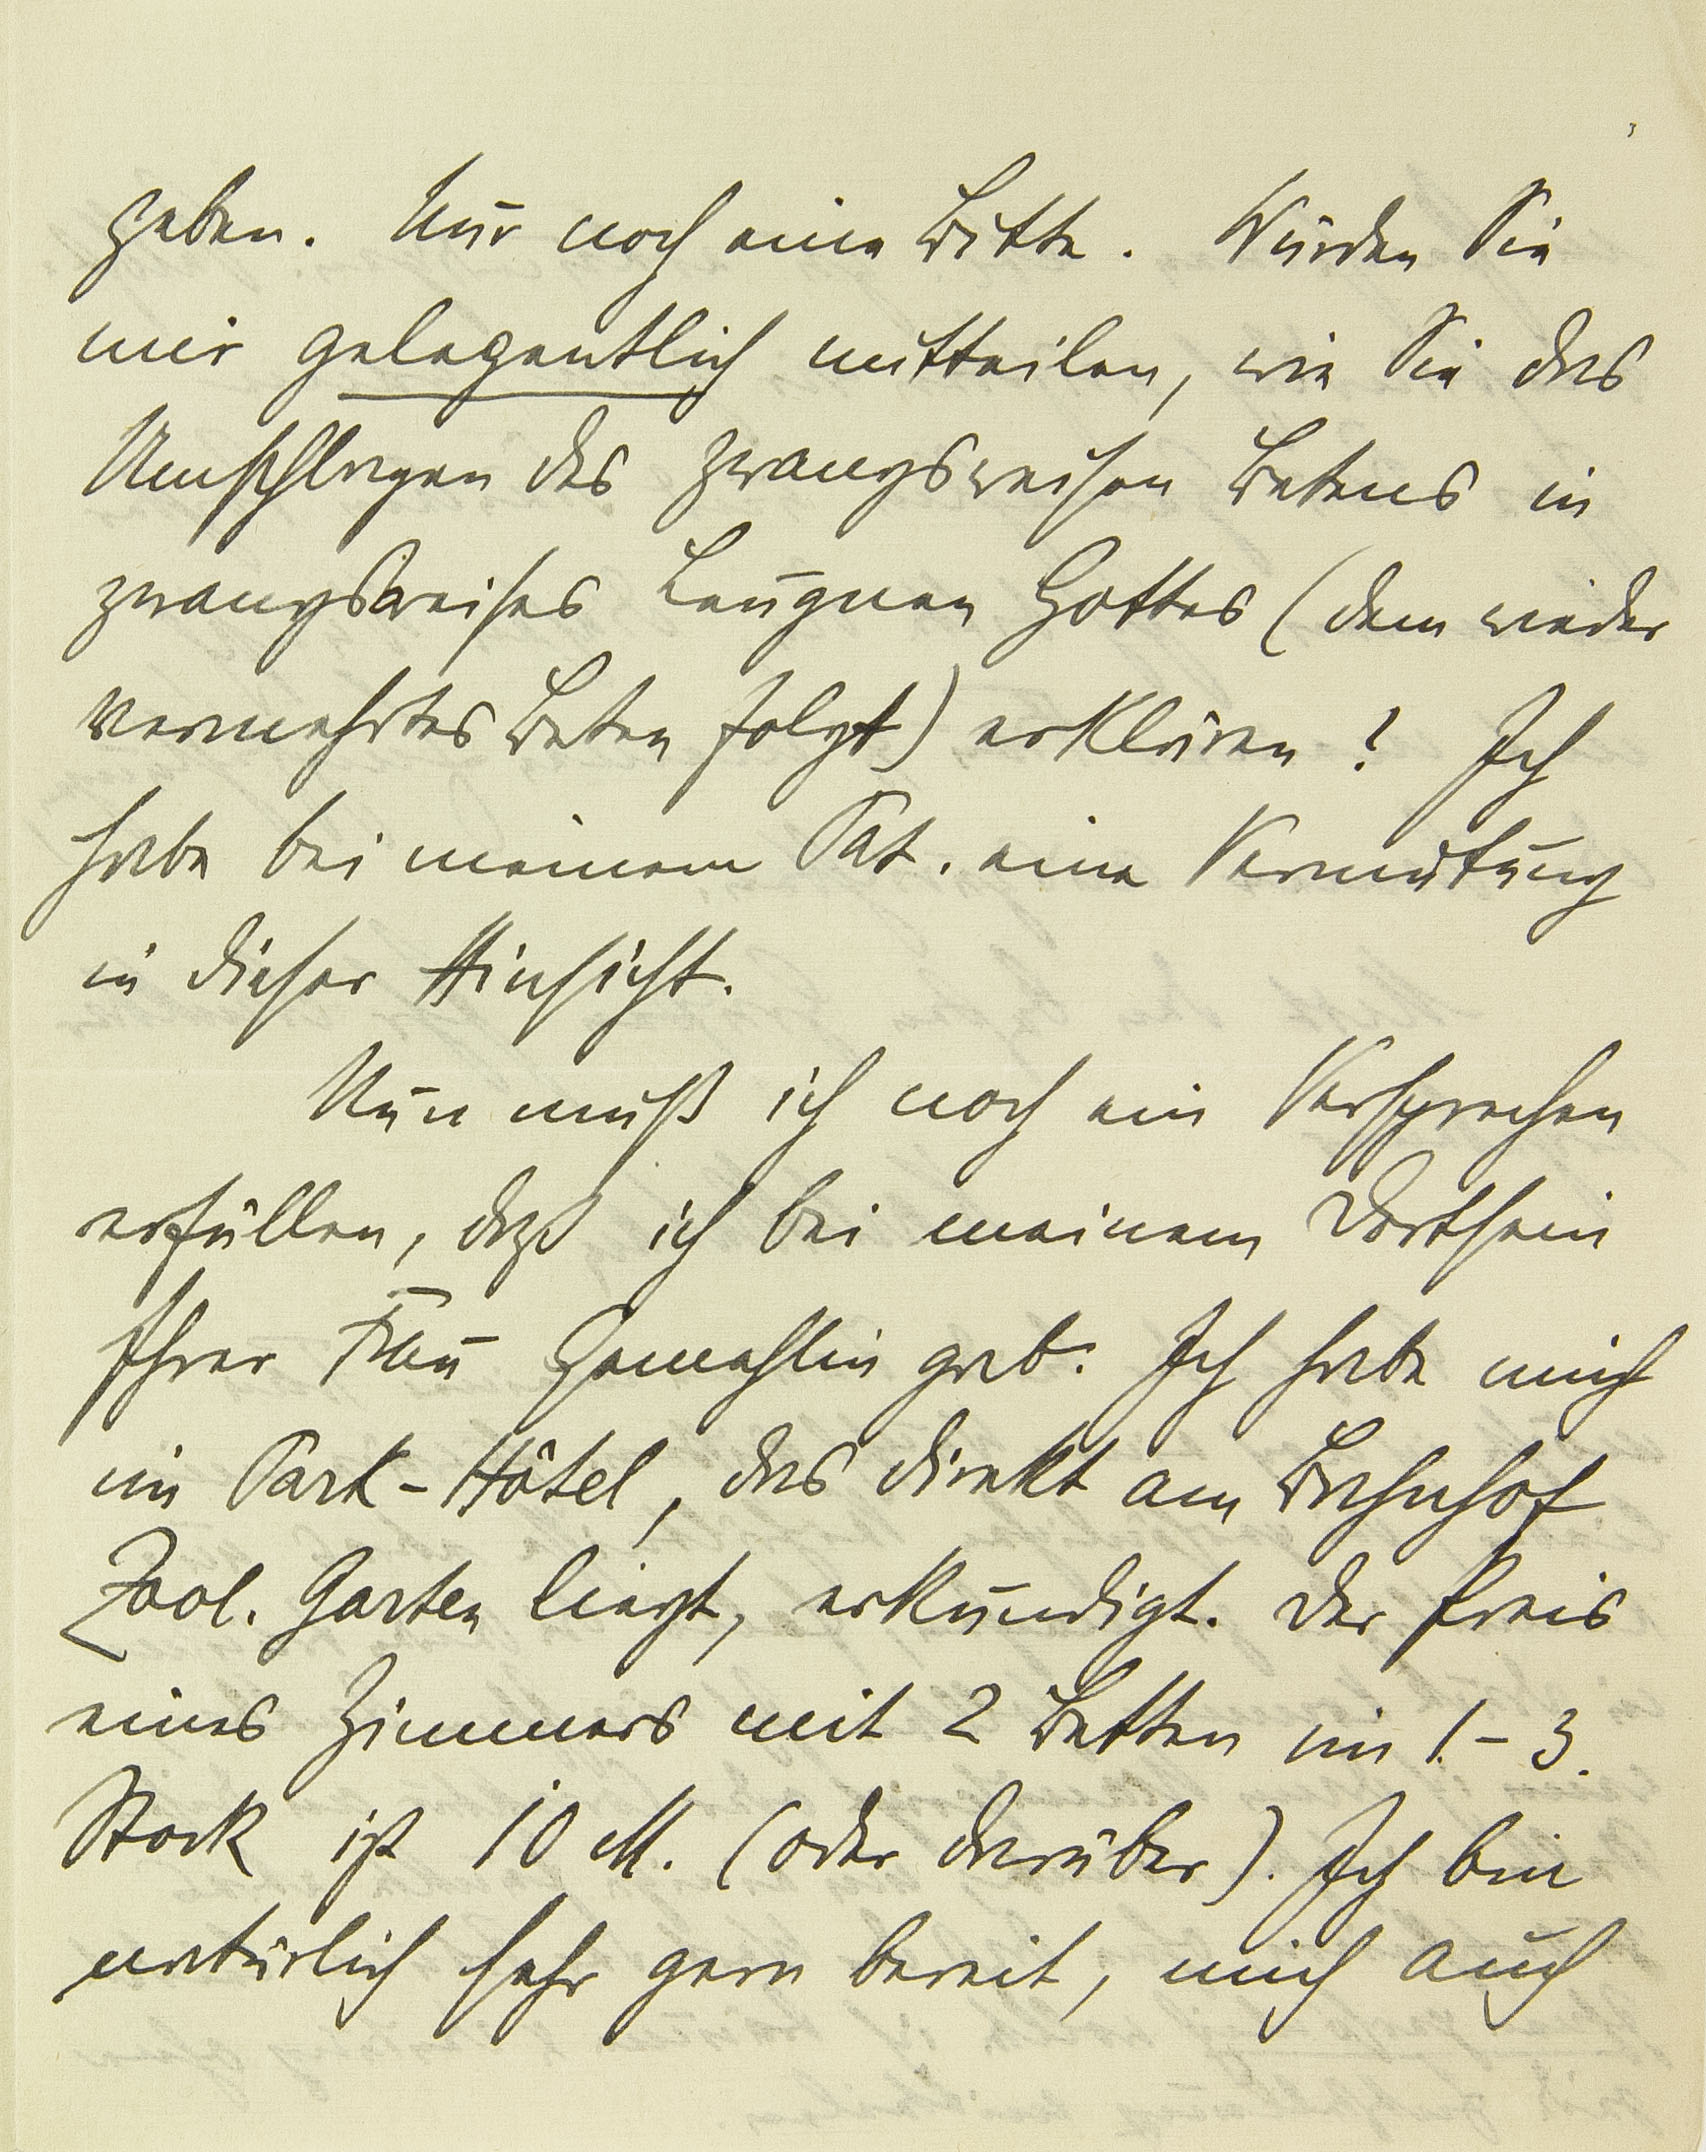 geben. Nur noch eine Bitte. Würden Sie
mir gelegentlich mitteilen, wie Sie das
Umschlagen des zwangsweisen Betens in
zwangsweises Leugnen Gottes (dem wieder
vermehrtes Beten folgt) erklären? Ich
habe bei meinem Pat. eine Vermutung
in dieser Hinsicht.
Nun muß ich noch ein Versprechen
erfüllen, daß ich bei meinem Dortsein
Ihrer Frau Gemahlin gab: Ich habe mich
im Park-Hôtel, das direkt am Bahnhof
Zool. Garten liegt, erkundigt. Der Preis
eines Zimmers mit 2 Betten im 1.-3.
Stock ist 10 M. (oder darüber). Ich bin
natürlich sehr gern bereit, mich auch